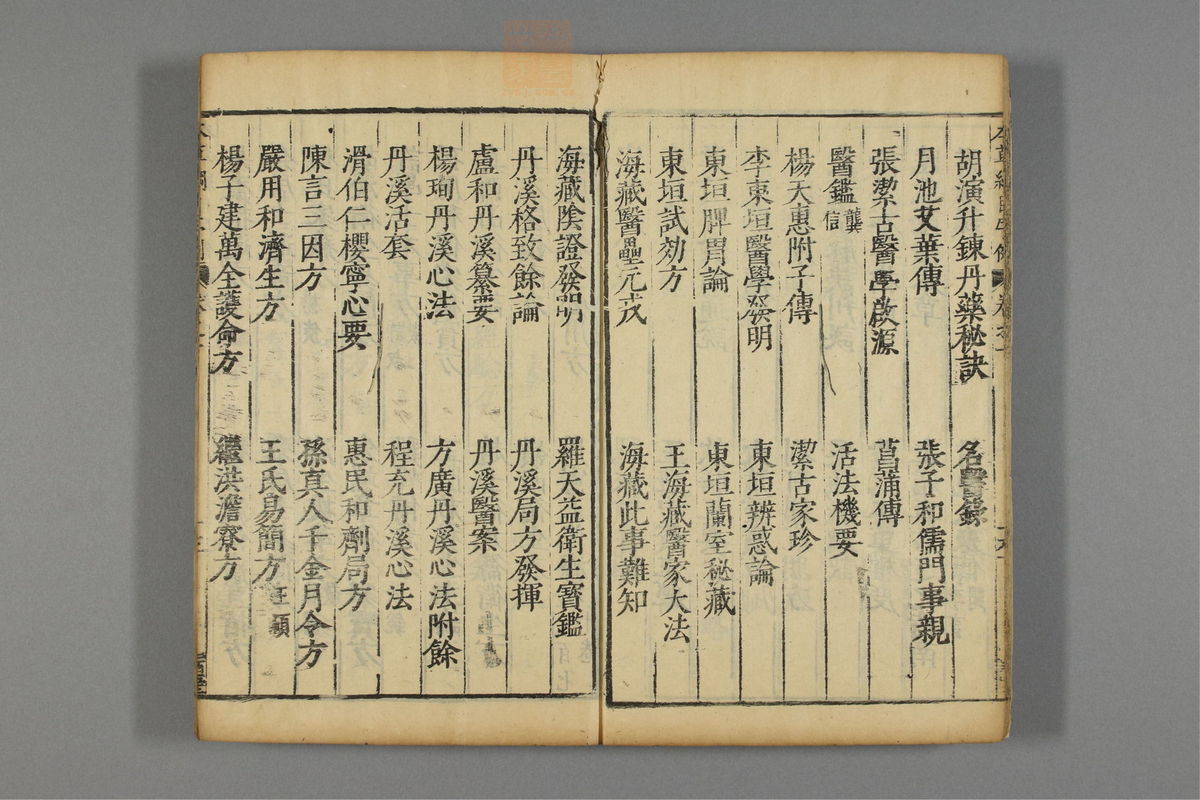 胡演升鍊丹藥秘訣　名醫錄
月池艾葉傳　張子和儒門事親
張潔古醫學啟源　菖蒲傳
醫鑑龔信　活法機要
楊天惠附子傳　潔古家珍
李東垣醫學發明　東垣辨惑論
東垣脾胃論　東垣蘭室秘藏
東垣試効方　王海藏醫家大法
海藏醫壘元戎　海藏此事難知
海藏陰證發明　羅天益衛生寶鑑
丹溪格致餘論　丹溪局方發揮
盧和丹溪纂要　丹溪醫案
楊珣丹溪心法　方廣丹溪心法附餘
丹溪活套　程充丹溪心法
滑伯仁櫻寧心要　惠民和劑局方
陳言三因方　孫真人千金月令方
嚴用和濟生方　王氏易簡方
楊子建萬全護命方　繼洪澹寮方